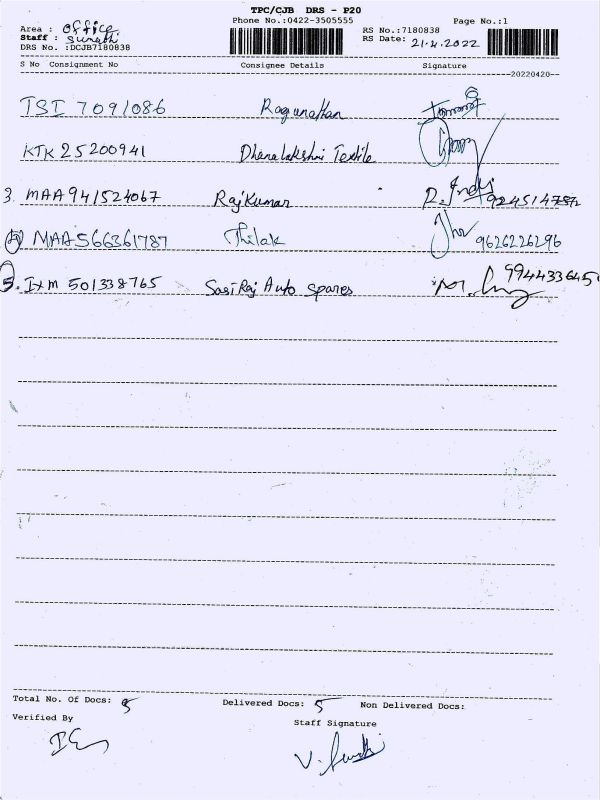 TPC/CJB DRS - P20
Phone No.:0422-3505555 Page No.:1
Area : office RS No.:7180838
Staff : Surathi RS Date: 21.4.2022
DRS No. :DCJB7180838
S No Consignment No Consignee Details Signature
20220420
TSI 7091086 Ragunathan
KTK 25200941 Dhanalakshmi Textile
3. MAA 941524067 Raj Kumar
4 MAA566361787 Thilak 9626226296
5. IXM 501338765 SasiRaj Auto Spares 994433645
Total No. Of Docs: 5 Delivered Docs: 5 Non Delivered Docs:
Verified By Staff Signature